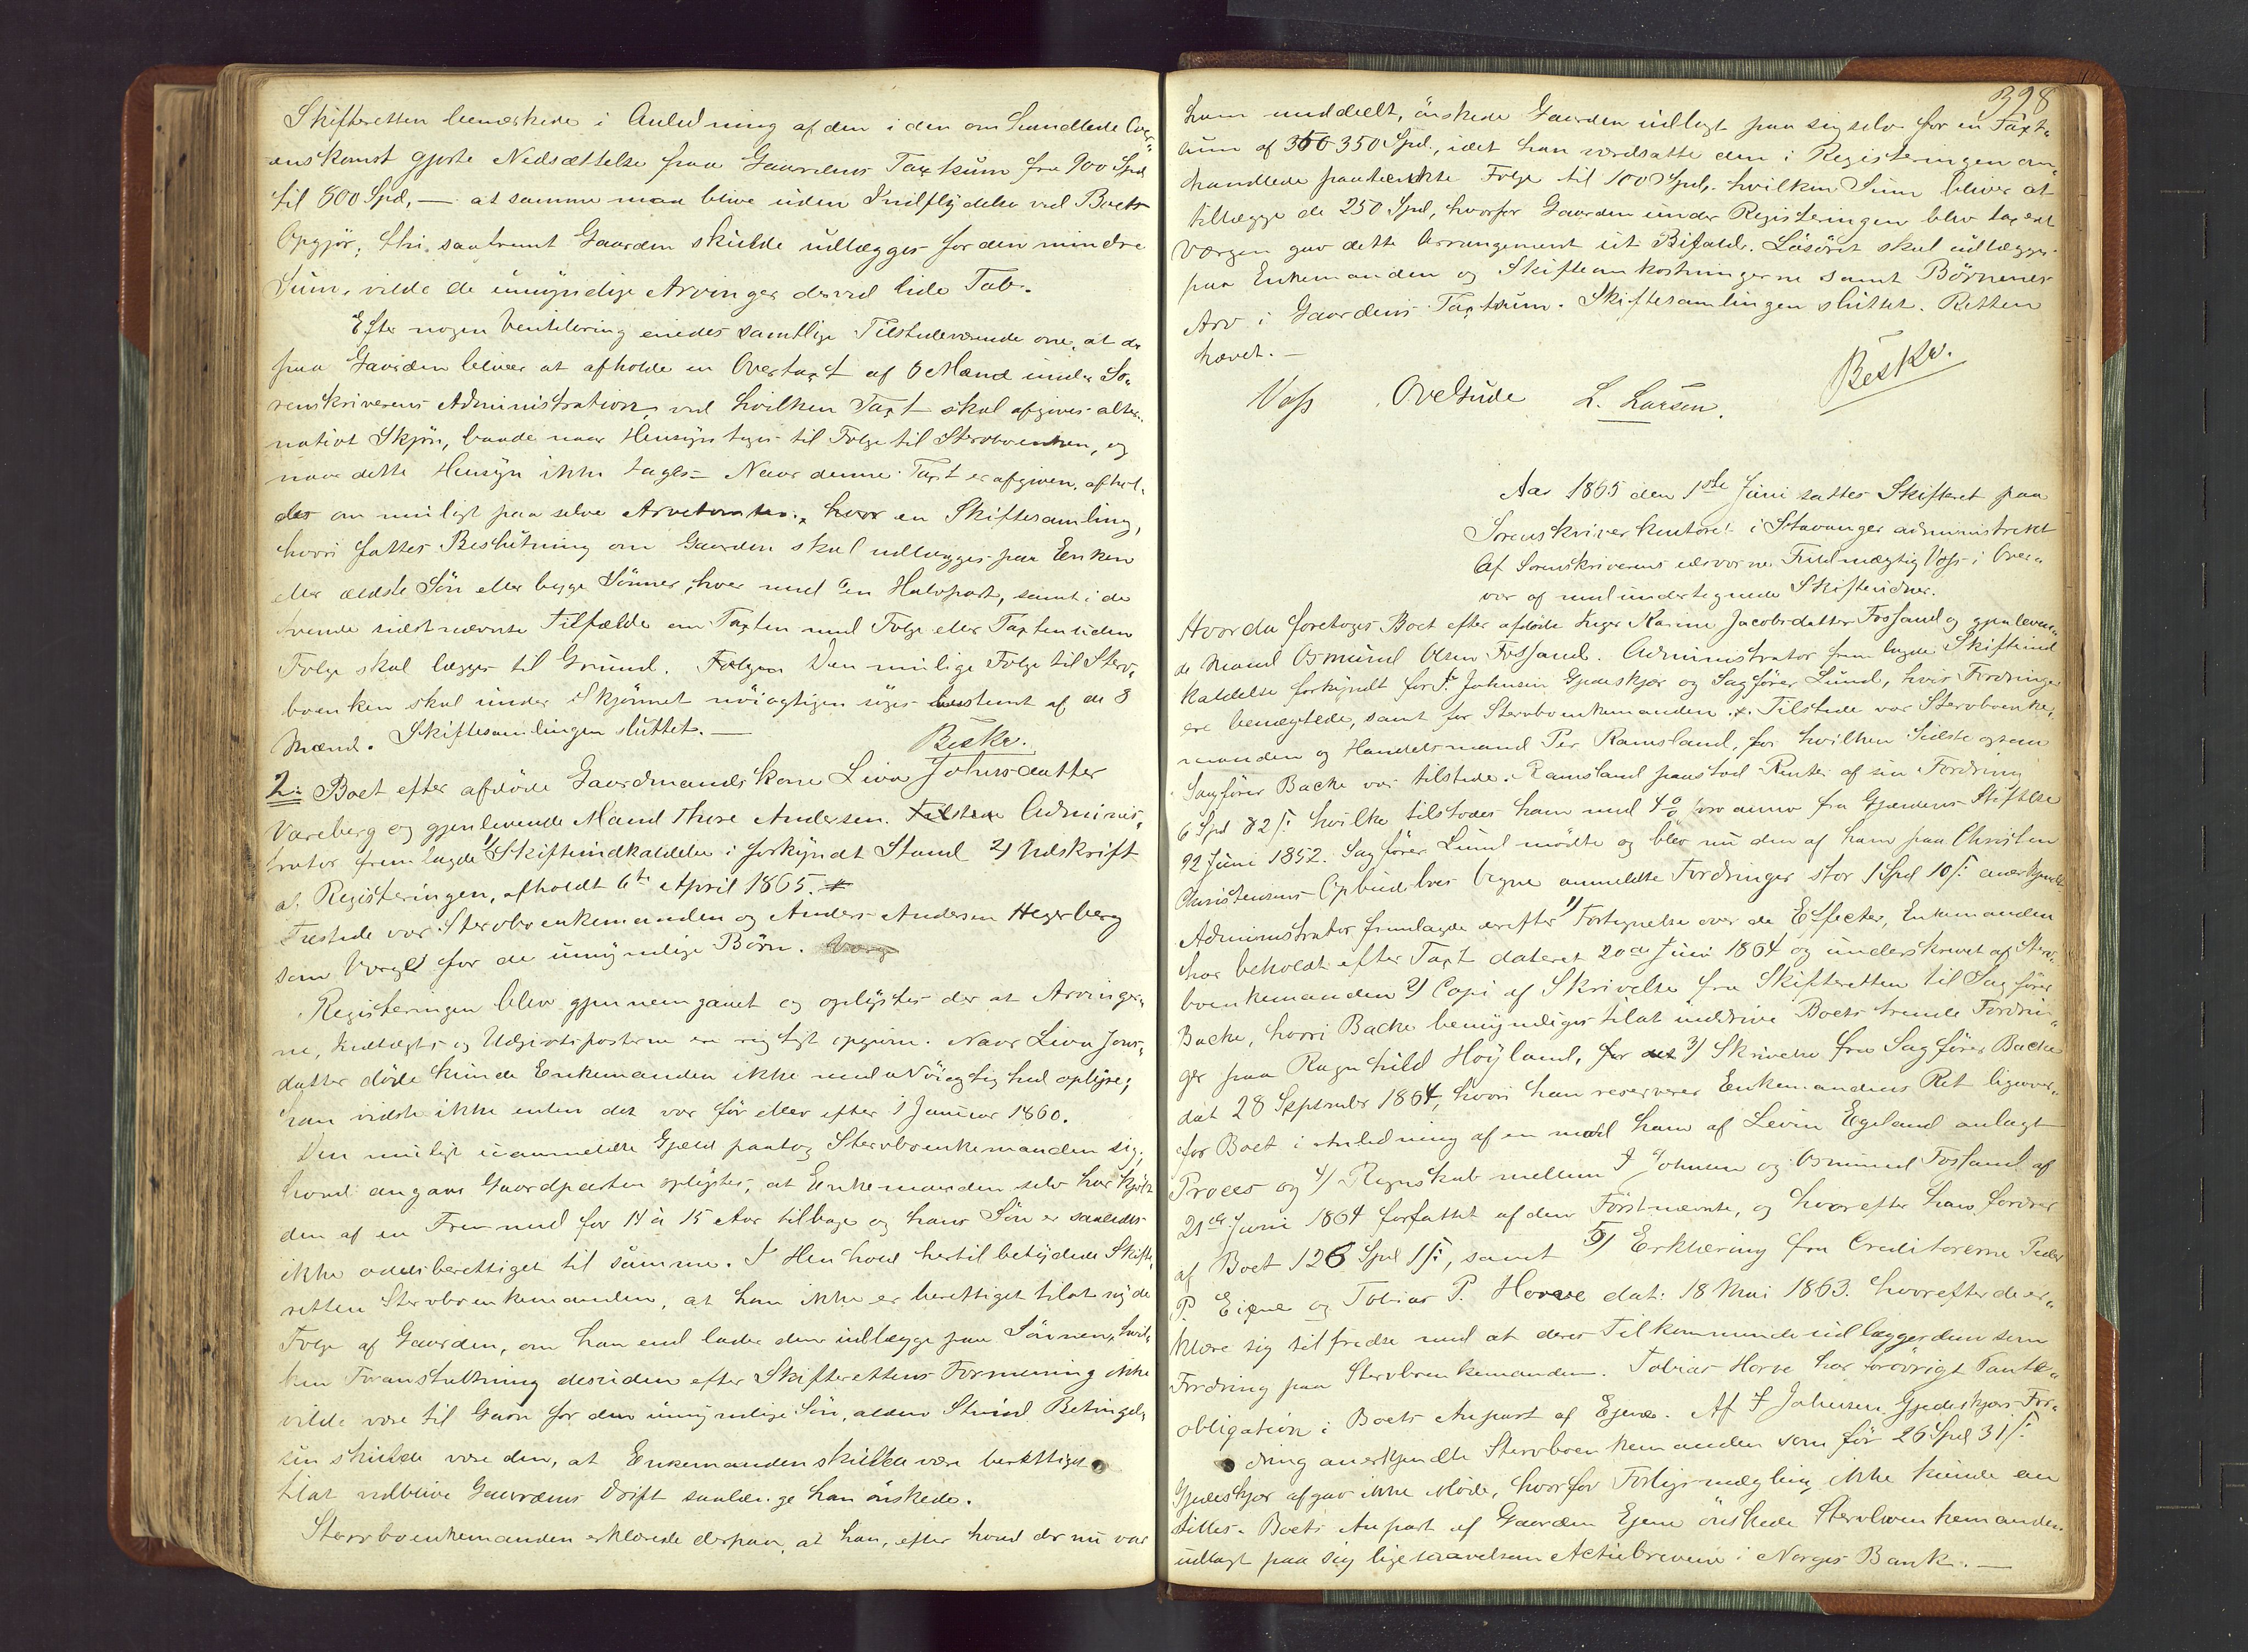 Skifteretten bemærkede i Anledning af den i den om handlede Over„
enskomst gjorte Nedsættelse paa Gaardens Taxtsum fra 900 Spd
til 800 Spd, — at samme maa blive uden Indflydelse ved Boets
Opgjør; thi saafremt Gaarden skulde udlægges for den mindre
Sum, vilde de umyndige Arvinger derved lide Tab.
Efter nogen Ventilering enedes samtlige Tilstedeværende om, at der
paa Gaarden bliver at afholde en Overtaxt af 6 Mænd under So„
renskriverens Administration, ved hvilken Taxt skal afgives alter„
nativt Skjøn, baade naar Hensyn tages til Folge til Stervboenken, og
naar dette Hensyn ikke tages – Naar denne Taxt er afgiven, afhol„
des om muligt paa selve Arvetomten, hvor en Skiftesamling,
hvori fattes Beslutning om Gaarden skal udlægges paa Enken
eller ældste Søn eller begge Sønner, hver med en Halvpart, samt i de
tvende sidstnævnte Tilfælde om Taxten med Folge eller Taxten uden
Folge skal lægges til Grund. Folgen Den mulige Folge til Sterv„
boenken skal under Skjønnet nøiagtigen siges bestemt af de 8
Mænd. Skiftesamlingen sluttet. —
Beskr.
2: Boet efter afdøde Gaardmandskone Liva Johnsdatter
Vareberg og gjenlevende Mand Thore Andersen. Tilstede Adminis„
trator fremlagde 1) Skifteindkaldelse i forkyndt Stand 2) Udskrift
af Registeringen, afholdt 6te April 1865.
Tilstede var Stervboenkemanden og Anders Andersen Hegerberg
som Verge for de umyndige Børn. Verge
Registeringen blev gjennemgaaet og oplystes der at Arvinger„
ne, Indtægts og Udgivtsposterne ere rigtigt opgivne. Naar Liva Jons„
datter døde kunde Enkemanden ikke med Nøiagtighed oplyse;
han vidste ikke enten det var før eller efter 1 Januar 1860.
Den muligt uanmeldte Gjæld paatog Stervboenkemanden sig;
hvad angaar Gaardparten oplystes, at Enkemanden selv har kjøbt
den af en Fremmed for 14 à 15 Aar tilbage og hans Søn er saaledes
ikke odelsberettiget til samme. I Henhold hertil betydede Skifte„
retten Stervboenkemanden, at han ikke er berettiget til at nyde
Folge af Gaarden, om han end lader den udlægge paa Sønnen, hvil„
ken Foranstaltning desuden efter Skifterettens Formening ikke
vilde være til Gavn for den umyndige Søn, alden Stund Betingel„
sen skulde være den, at Enkemanden skulde være berettiget
til at vedblive Gaardens Drift saalænge han ønskede.
Stervboenkemanden erklærede derpaa, at han, efter hvad der nu var
398
ham meddelt, ønskede Gaarden udlagt paa sig selv for en Taxt„
sum af 350 350 Spd, idet han værdsatte den i Registeringen om„
handlede paatænkte Folge til 100 Spd, hvilken Sum bliver at
tillægge de 250 Spd, hvorfor Gaarden under Registeringen blev taxeret
Værgen gav dette Arrangement sit Bifald. Løsøret skal udlægges
paa Enkemanden og Skifteomkostningerne samt Børnenes
Arv i Gaardens Taxtsum. Skiftesamlingen sluttet. Retten
hævet. —
Beskr.
Voss Ovelsude L. Larsen.
Aar 1865 den 1ste Juni sattes Skifteret paa
Sorenskriverkontoret i Stavanger administreret
af Sorenskriverens edsvorne Fuldmægtig Voss i Over„
vær af medundertegnede Skiftevidner.
Hvorda foretoges Boet efter afdøde Inger Karine Jacobsdatter Fossand og gjenleven„
de Mand Osmund Olsen Fossand. Administrator fremlagde Skifteind
kaldelse forkyndt for J. Johnsen Gjedeskjær og Sagfører Lund, hvis Fordringer
ere benægtede, samt for Stervboenkemanden. Tilstede var Stervboenke„
manden og Handelsmand Per Ramsland, for hvilken Sidste ogsaa
Sagfører Backe var tilstede. Ramsland paastod Renter af sin Fordring
6 Spd 82 ſ: hvilke tilstodes ham med 4 % pro anno fra Gjældens Stiftelse
22 Juni 1852. Sagfører Lund mødte og blev nu den af ham paa Christen
Christensens Opbudsboes Vegne anmeldte Fordringer stor 1 Spd 10 ſ: anerkjendt
Administrator fremlagde derefter 1) Fortegnelse over de Effecter, Enkemanden
har beholdt efter Taxt dateret 20de Juni 1864 og underskrevet af Sterv„
boenkemanden 2) Copi af Skrivelse fra Skifteretten til Sagfører
Backe, hvori Backe bemyndiges til at inddrive Boets trende Fordrin„
ger paa Ragnhild Høyland, for det 3) Skrivelse fra Sagfører Backe
dat 28 September 1864, hvori han reserverer Enkemandens Ret ligeover„
for Boet i Anledning af en mod ham af Levin Egeland anlagt
Proces og 4) Regnskab mellem J Johnsen og Osmund Fossand af
21de Juni 1864 forfattet af den Førstnævnte, og hvorefter han fordrer
af Boet 126 Spd 1 ſ:, samt 5) Erklæring fra Creditorerne Peder
P. Eigne og Tobias P. Horve dat: 18 Mai 1863. hvorefter de er„
klære sig tilfredse med at deres Tilkommende udlægges dem som
Fordring paa Stervboenkemanden. Tobias Horve har forøvrigt Pante„
obligation i Boets Anpart af Ejene. Af J Johnsen Gjedeskjærs For„
dring anerkjendte Stervboenkemanden som før 26 Spd 31 ſ:
Gjedeskjær afgav ikke Møde, hvorfor Forligsmægling ikke kunde an
stilles. Boets Anpart af Gaarden Ejene ønskede Stervboenkemanden
udlagt paa sig ligesaavelsom Actiebrevene i Norges Bank. —